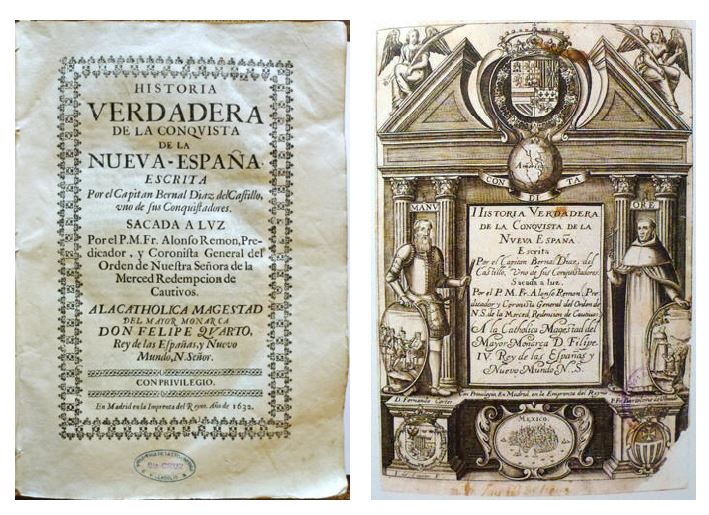 HISTORIA
VERDADERA
DE LA CONQVISTA
DE LA
NUEVA-ESPAÑA.
ESCRITA
Por el Capitan Bernal Diaz del Castillo,
vno de sus Conquistadores.
SACADA A LVZ
Por el P.M.Fr. Alonso Remon, Pre-
dicador, y Coronista General del
Orden de Nuestra Señora de la
Merced Redempcion de
Cautivos.
A LA CATHOLICA MAGESTAD
DEL MAYOR MONARCA
DON FELIPE QVARTO,
Rey de las Españas, y Nuevo
Mundo, N. Señor.
CON PRIVILEGIO.
En Madrid en la Imprenta del Reyno. Año de 1632.
America
CON DI TA
MANV
ORE
HISTORIA VERDADERA
DE LA CONQUISTA DE LA
NVEVA ESPAÑA.
Escrita
Por el Capitan Bernal Diaz, del
Castillo, Vno de sus Conquistadores.
Sacada a luz,
Por el P. M. Fr. Alonso Remon, Pre
dicador y Coronista General del Orden de
N. S. de la Merced, Redencion de Cautivos.
A la Catholica Magestad del
Mayor Monarca D. Felipe
IV. Rey de las Españas y
Nuevo Mundo N. S.
Con Privilegio, En Madrid, en la Emprenta del Reyno
D. Fernando Cortes
P. Fr. Bartolome de Olmedo
MEXICO.